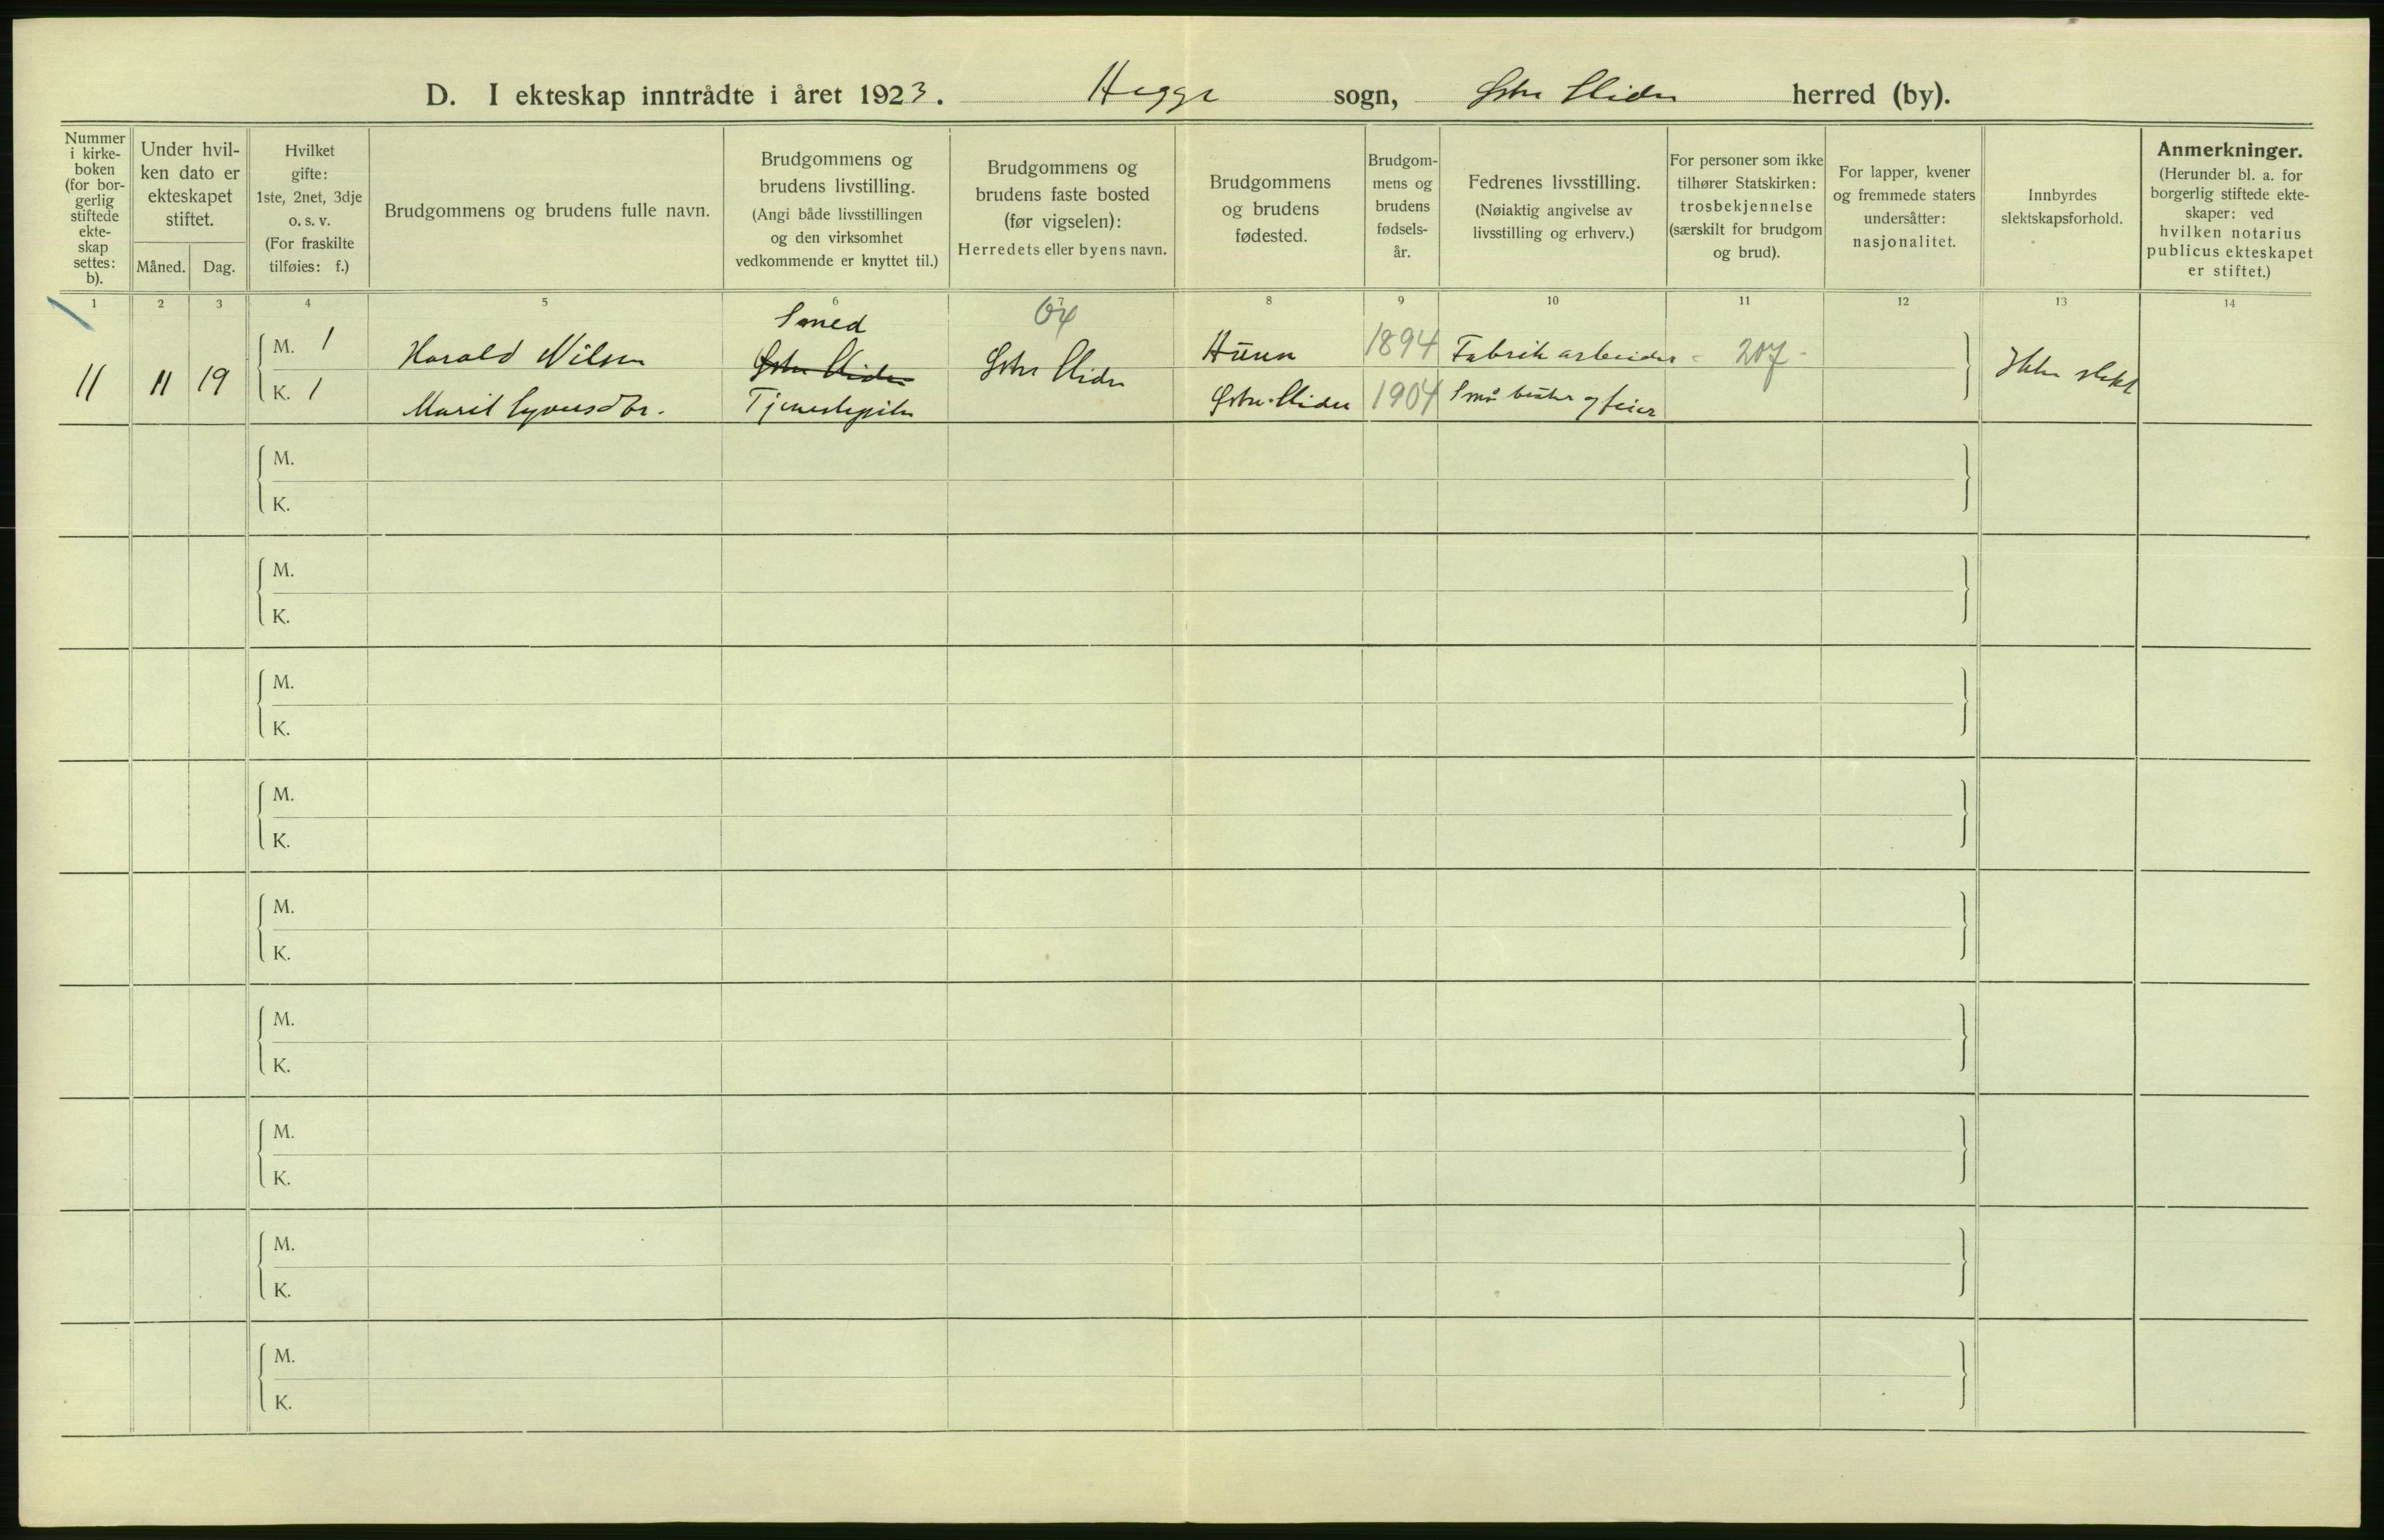 D. I ekteskap inntrådte i året 1923. Hegge sogn, Østre Slidre herred (by).
Nummer
i kirke-
boken
(for bor-
gerlig
stiftede
ekte-
skap
settes:
b).
Under hvil-
ken dato er
ekteskapet
stiftet.
Måned. Dag.
Hvilket
gifte:
1ste, 2net, 3dje
o. s. v.
(For fraskilte
tilføies: f.)
Brudgommens og brudens fulle navn.
Brudgommens og
brudens livstilling.
(Angi både livsstillingen
og den virksomhet
vedkommende er knyttet til.)
Brudgommens og
brudens faste bosted
(før vigselen):
Herredets eller byens navn.
Brudgommens
og brudens
fødested.
Brudgom-
mens og
brudens
fødsels-
år.
Fedrenes livsstilling.
(Nøiaktig angivelse av
livsstilling og erhverv.)
For personer som ikke
tilhører Statskirken:
trosbekjennelse
(særskilt for brudgom
og brud).
For lapper, kvener
og fremmede staters
undersåtter:
nasjonalitet.
Innbyrdes
slektskapsforhold.
Anmerkninger.
(Herunder bl. a. for
borgerlig stiftede ekte-
skaper: ved
hvilken notarius
publicus ekteskapet
er stiftet.)
1 2 3 4 5 6 7 8 9 10 11 12 13 14
Smed
11 11 19 M. 1 Harald Nilsen Østre Slidre Østre Slidre Hunn 1894 Fabrikarbeider - 207 - Ikke slekt
K. 1 Marit Syversdtr. Tjenestepike Østre Slidre 1904 Småbruker og feier
M.
K.
M.
K.
M.
K.
M.
K.
M.
K.
M.
K.
M.
K.
M.
K.
M.
K.